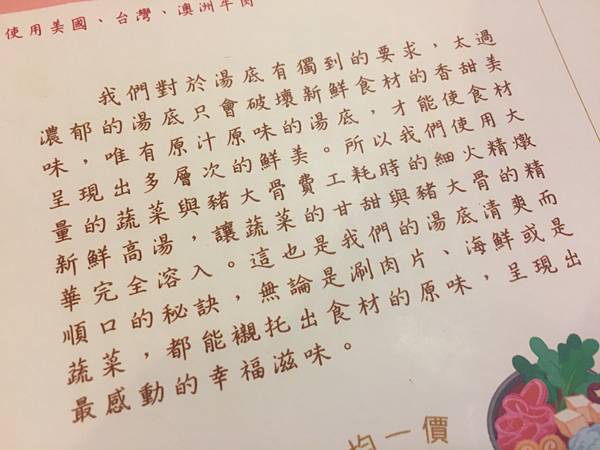 使用美國、台灣、澳洲牛肉
我們對於湯底有獨到的要求，太過
濃郁的湯底只會破壞新鮮食材的香甜美
味，唯有原汁原味的湯底，才能使食材
呈現出多層次的鮮美。所以我們使用大
量的蔬菜與豬大骨費工耗時的細火精燉
新鮮高湯，讓蔬菜的甘甜與豬大骨的精
華完全溶入。這也是我們的湯底清爽而
順口的秘訣，無論是涮肉片、海鮮或是
蔬菜，都能襯托出食材的原味，呈現出
最感動的幸福滋味。
均一價